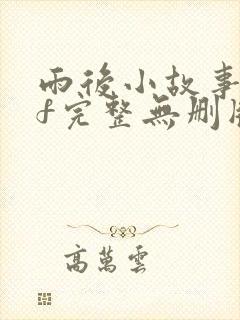 雨後小故事
f完整無刪
高萬雲